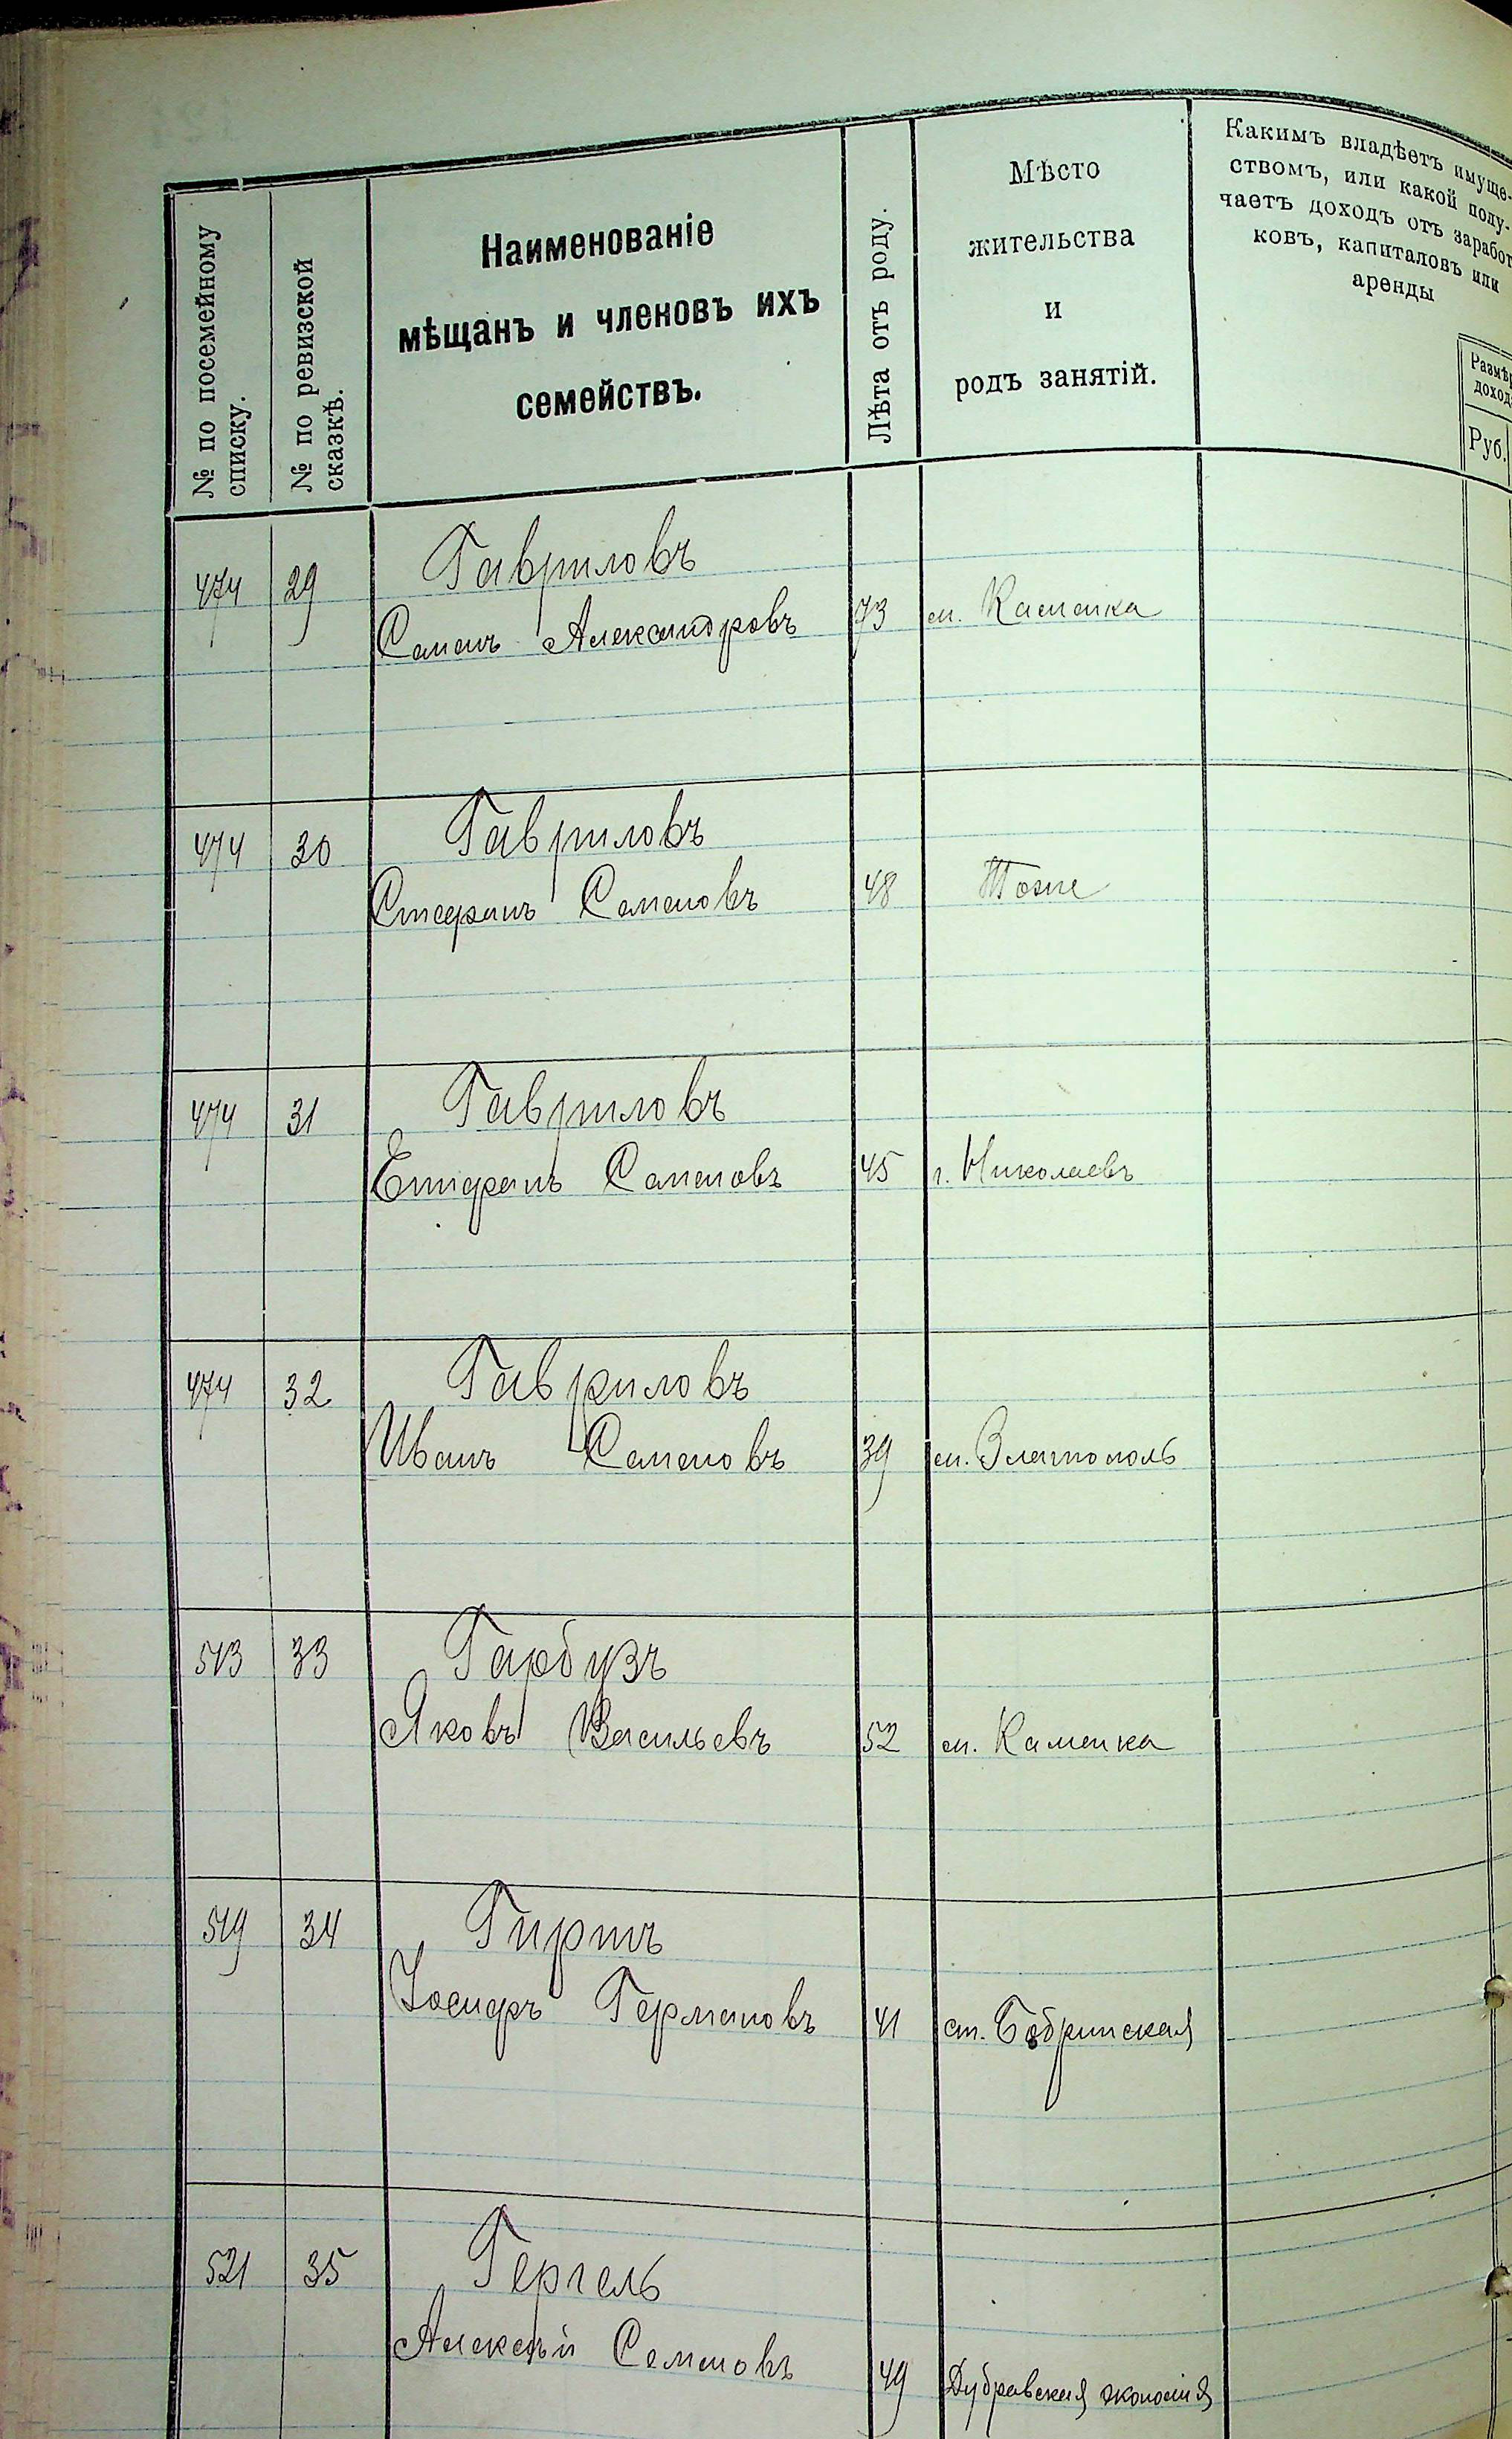 № по посемейному
списку.
№ по ревизской
сказкѣ.
Наименованіе
мѣщанъ и членовъ ихъ
семействъ.
Лѣта отъ роду.
Мѣсто
жительства
и
родъ занятій.
Какимъ владѣетъ имуще-
ствомъ, или какой полу-
чаетъ доходъ отъ заработ
ковъ, капиталовъ или
аренды
Размѣ
доход
Руб.
474 29 Гавриловъ
Семенъ Александровъ 73 м. Каменка
474 30 Гавриловъ
Стефанъ Семеновъ 48 Тоже
474 31 Гавриловъ
Епифанъ Семеновъ 45 г. Николаевъ
474 32 Гавриловъ
Иванъ Семеновъ 39 м. Златополь
513 33 Гарбузъ
Яковъ Васильевъ 52 м. Каменка
519 34 Гиртъ
Іосифъ Германовъ 41 ст. Бобринская
521 35 Гергель
Алексѣй Семеновъ 49 Дубравская экономія